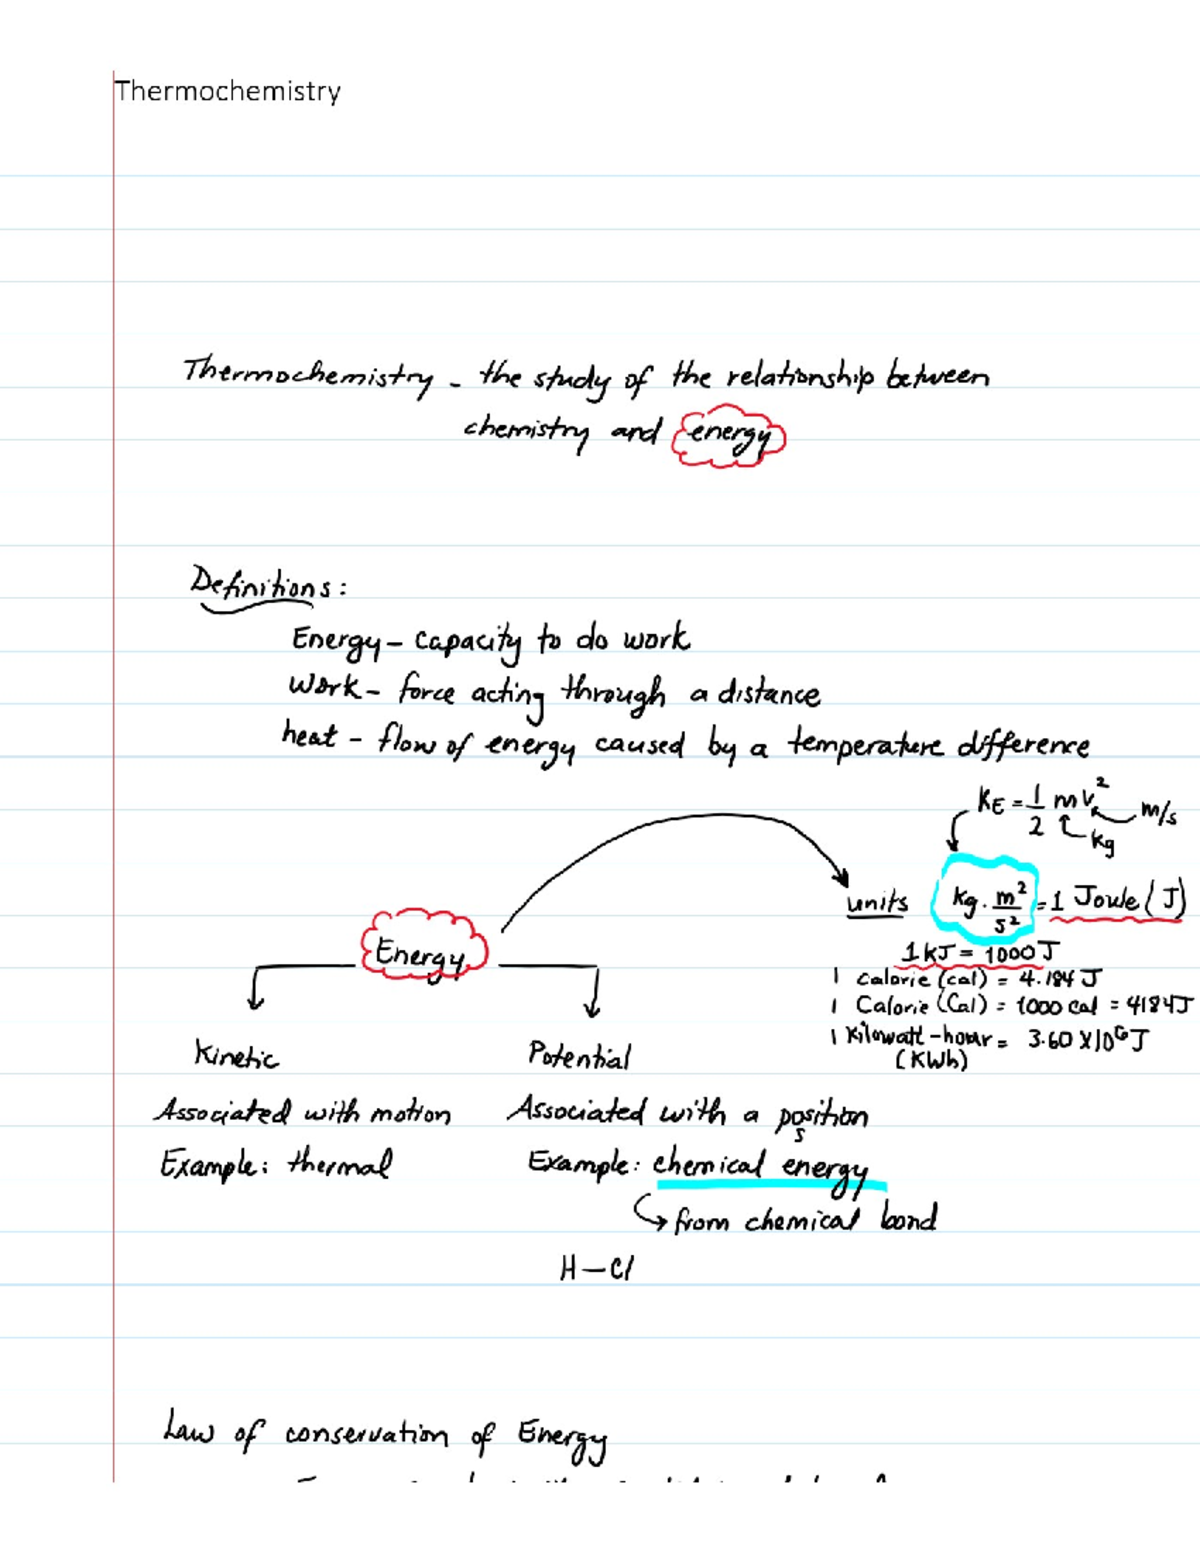 Thermochemistry
Thermochemistry - the study of the relationship between
chemistry and energy
Definitions:
Energy - capacity to do work
Work - force acting through a distance
heat - flow of energy caused by a temperature difference
KE = 1/2 mv² m/s
kg
units kg · m²/s² = 1 Joule (J)
1 kJ = 1000 J
1 calorie (cal) = 4.184 J
1 Calorie (Cal) = 1000 cal = 4184 J
1 Kilowatt-hour = 3.60 X 10⁶ J
(KWh)
Energy
Kinetic
Associated with motion
Example: thermal
Potential
Associated with a position
s
Example: chemical energy
from chemical bond
H-Cl
Law of conservation of Energy